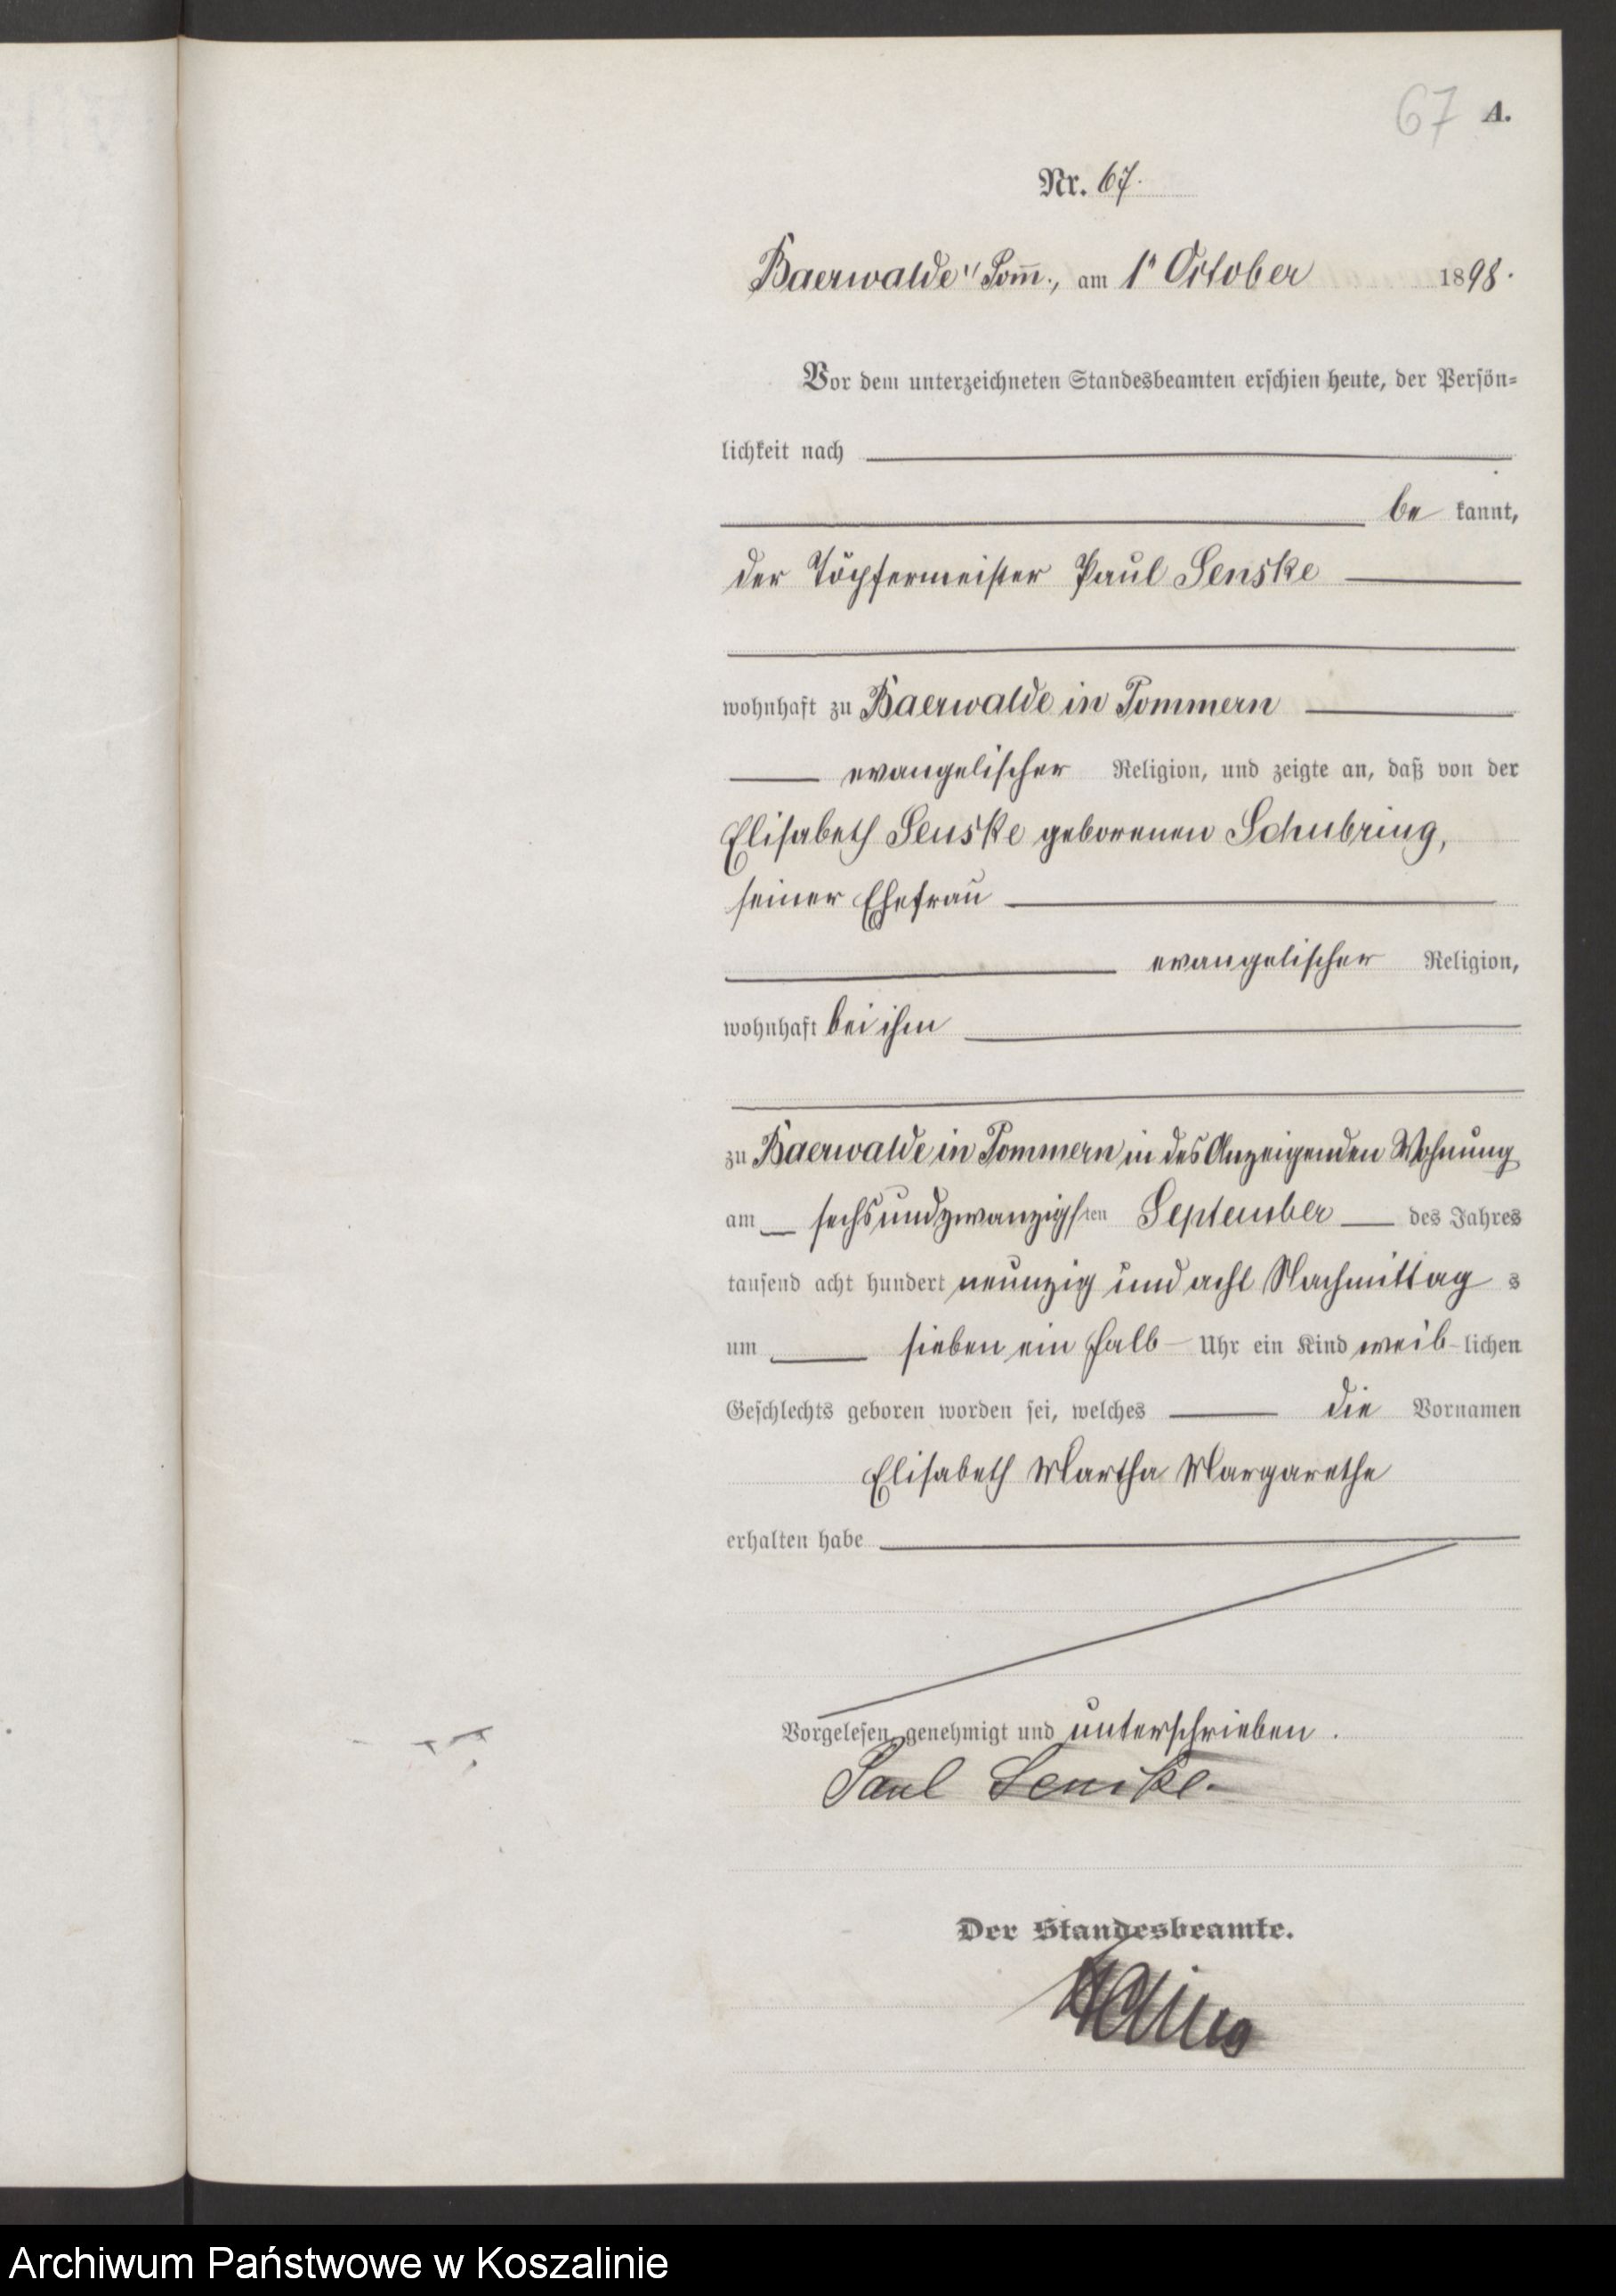 67 A.
Nr. 67.
Baerwalde i/ Pom̅., am 1n October 1898.
Vor dem unterzeichneten Standesbeamten erschien heute, der Persön=
lichkeit nach
be kannt,
der Töpfermeister Paul Senske
wohnhaft zu Baerwalde in Pommern
evangelischer Religion, und zeigte an, daß von der
Elisabeth Senske geborenen Schubring,
seiner Ehefrau
evangelischer Religion,
wohnhaft bei ihm
zu Baerwalde in Pommern in des Anzeigenden Wohnung
am sechsundzwanzigsten September des Jahres
tausend acht hundert neunzig und acht Nachmittag s
um sieben ein halb Uhr ein Kind weib-lichen
Geschlechts geboren worden sei, welches die Vornamen
Elisabeth Martha Margarethe
erhalten habe
Vorgelesen, genehmigt und unterschrieben.
Paul Senske.
Der Standesbeamte.
Archiwum Państwowe w Koszalinie